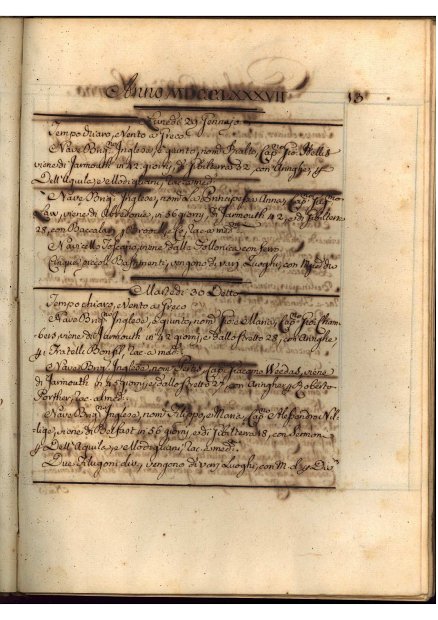 Anno MDCCLXXXVII
13
Lunedi 29 Gennajo
Tempo chiaro, Vento a Greco
Nave Brig.no Inglese, è giunto, nom.
viene di Jarmouth in 42 giorni, e Gibilterra 32, con Aringhe, p
Dell'Aquila, e Modigliani, rac. a med.
Nave Brig.no Inglese, nom. la Principessa Anna, Cap.no
viene di Aberdonia, in 56 giorni, di Jarmouth 42, e di Gibilterra
28, con Baccalari,
Navicello Toscano, viene dalla Follonica, con ferro
Cinque piccoli Bastimenti, vengono di varj Luoghi, con
Martedi 30 Detto
Tempo chiaro, Vento a Greco
Nave Brig.no Inglese, è giunto, nom. Gio: e Maria, Cap.no Gio: Cham-
bers, viene di Jarmouth in 42 giorni, e dallo Stretto 28, con Aringhe
p Fratelli Bonfil, rac. a med.
Nave Brig.no Inglese, nom. Cap. Jacomo Weedas, viene
di Jarmouth in 45 giorni, e dallo Stretto 27, con Aringhe, p Roberto
Porther, rac. a med.
Nave Brig.no Inglese, nom. Filippo, e Maria, Cap.no Alessandro
viene di Belfast in 56 giorni, e di Gibilterra 18, con Salmon
p Dell'Aquila, e Modigliani, rac. a med.
Due Filugoni div. vengono di varj Luoghi, con M. di e Div.